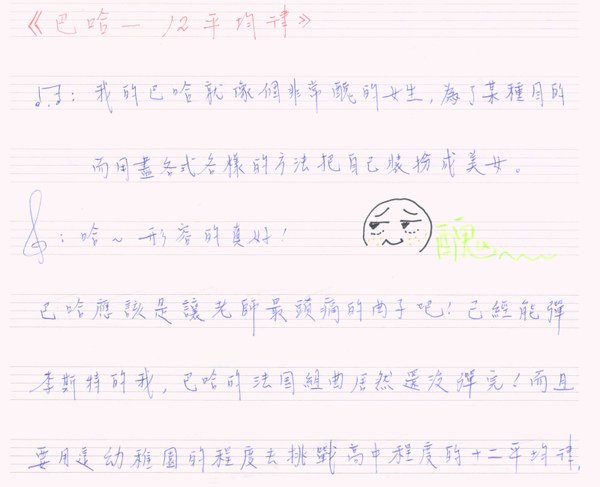 《巴哈—12平均律》
♩♬：我的巴哈就像個非常醜的女生，為了某種目的
而用盡各式各樣的方法把自己裝扮成美女。
𝄞：哈~形容的真好！
醜
巴哈應該是讓老師最頭痛的曲子吧！已經能彈
李斯特的我，巴哈的法国組曲居然還没彈完！而且
要用這幼稚園的程度去挑戰高中程度的十二平均律，